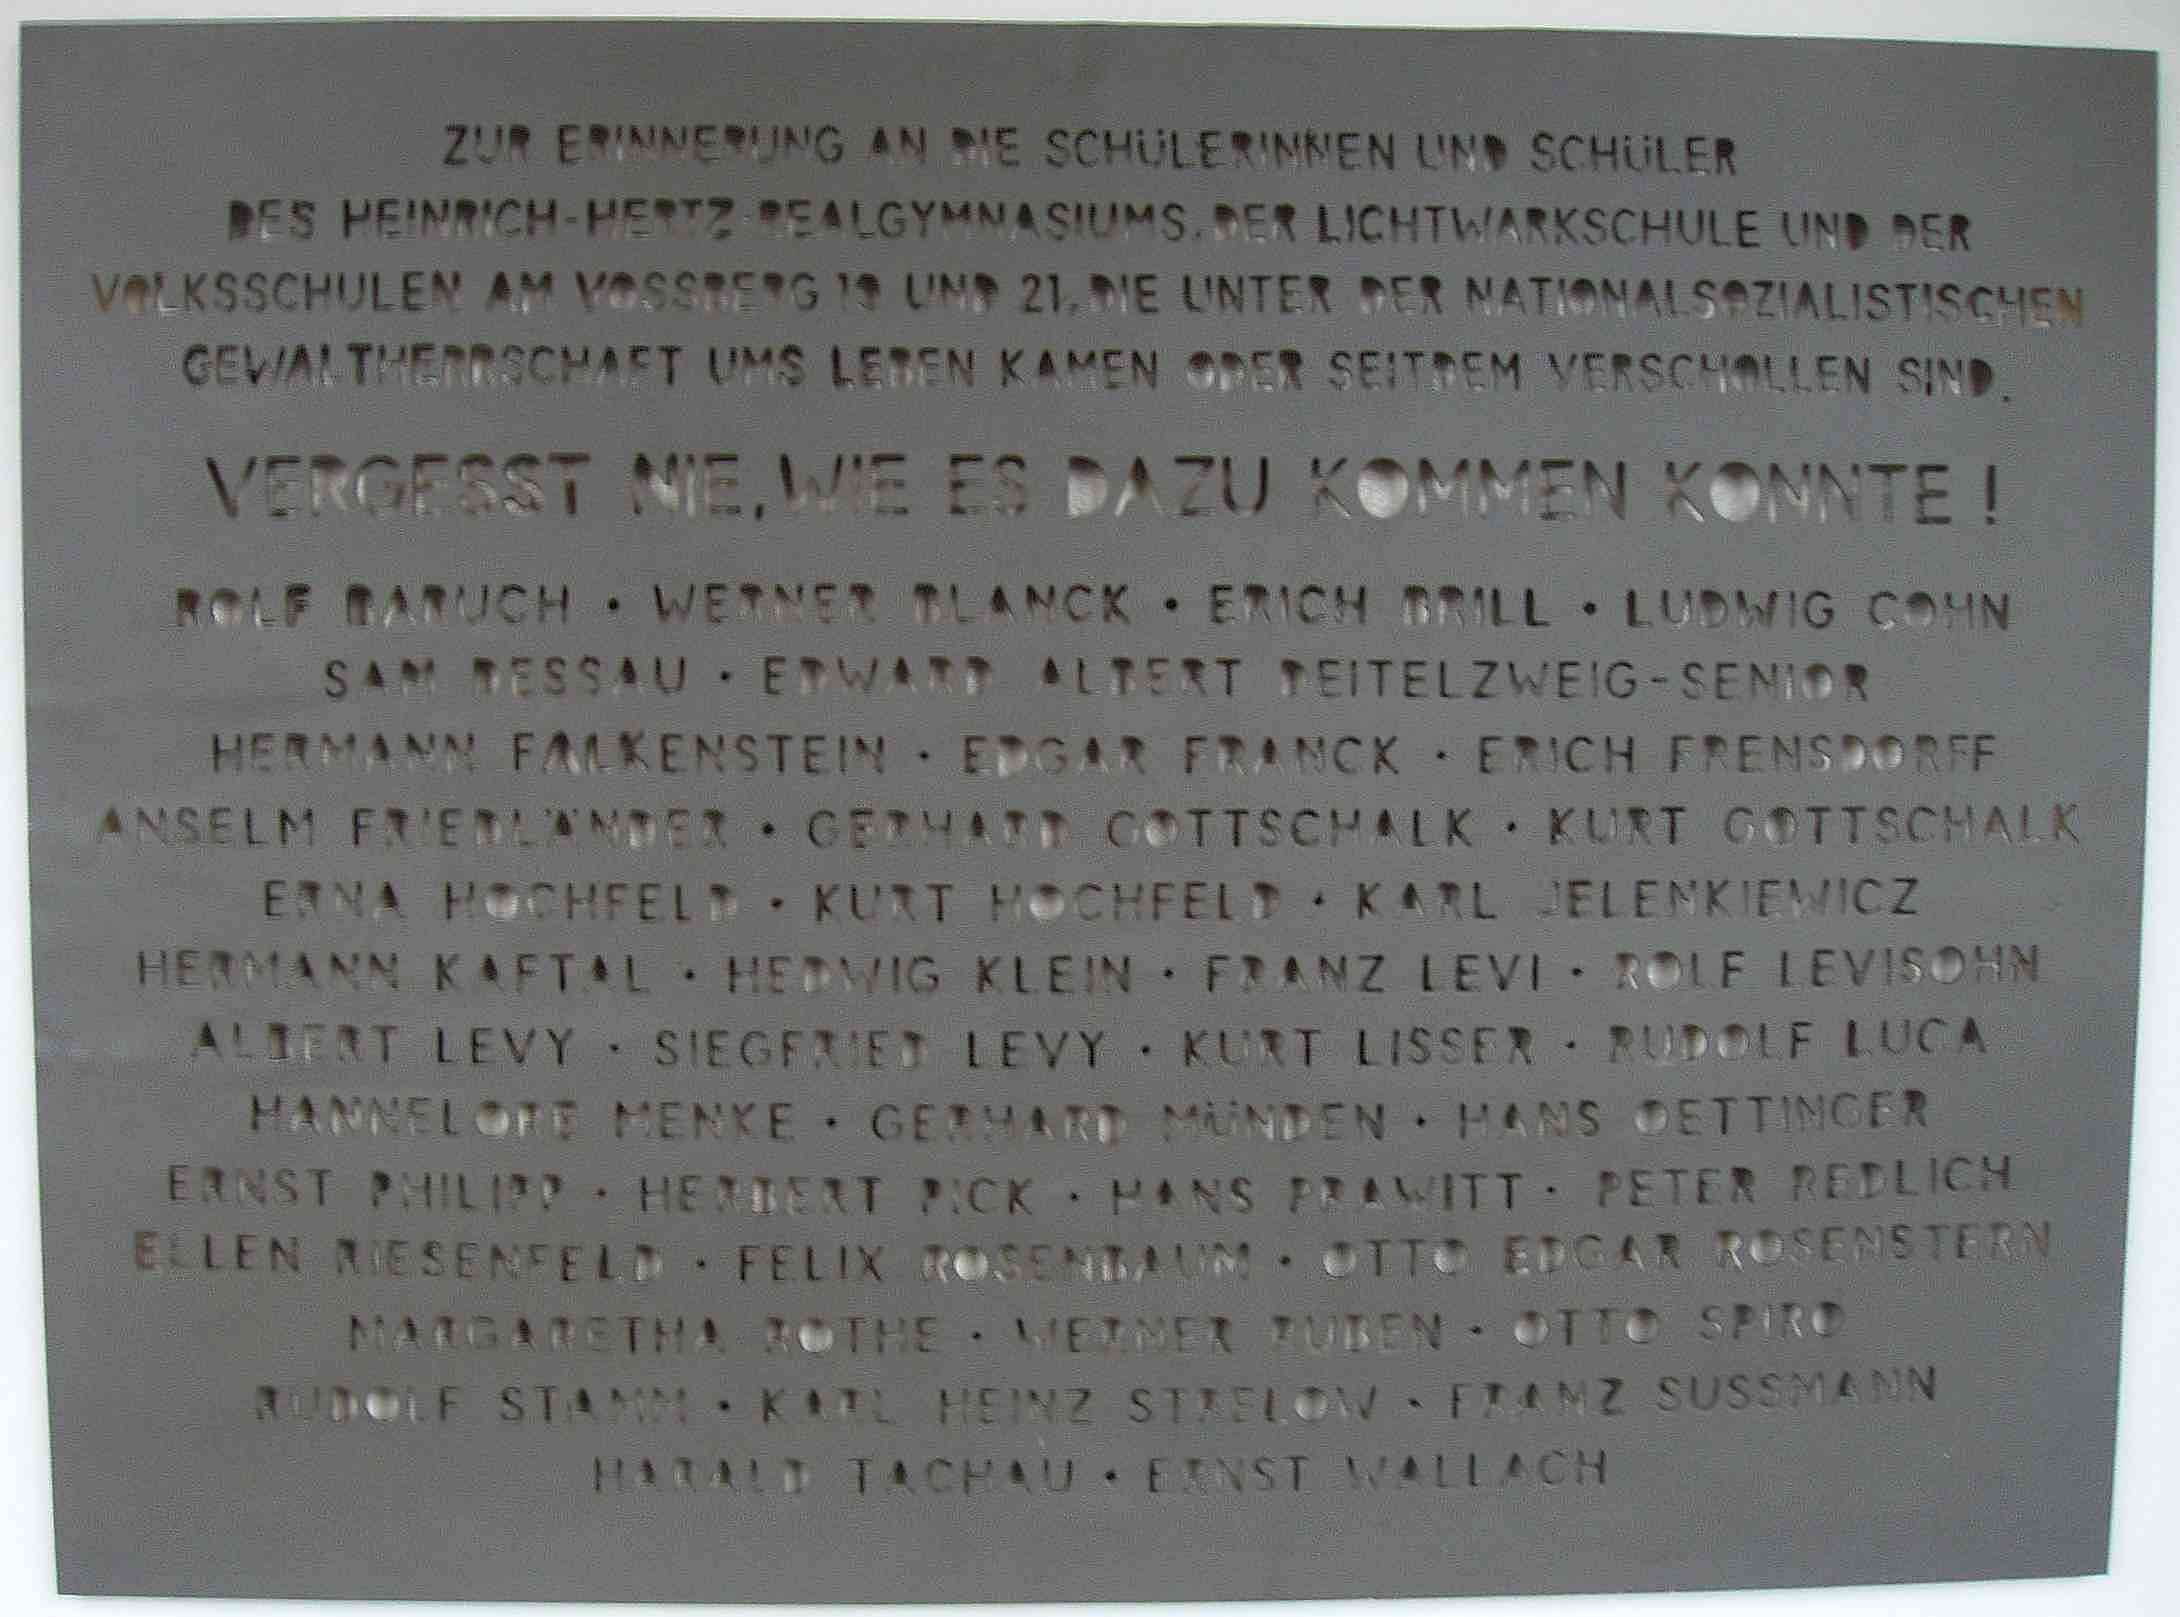 ZUR ERINNERUNG AN DIE SCHÜLERINNEN UND SCHÜLER
DES HEINRICH-HERTZ-REALGYMNASIUMS, DER LICHTWARKSCHULE UND DER
VOLKSSCHULEN AM VOSSBERG 19 UND 21, DIE UNTER DER NATIONALSOZIALISTISCHEN
GEWALTHERRSCHAFT UMS LEBEN KAMEN ODER SEITDEM VERSCHOLLEN SIND.
VERGESST NIE, WIE ES DAZU KOMMEN KONNTE!
ROLF BARUCH • WERNER BLANCK • ERICH BRILL • LUDWIG COHN
SAM DESSAU • EDWARD ALBERT DEITELZWEIG-SENIOR
HERMANN FALKENSTEIN • EDGAR FRANCK • ERICH FRENSDORFF
ANSELM FRIEDLÄNDER • GERHARD GOTTSCHALK • KURT GOTTSCHALK
ERNA HOCHFELD • KURT HOCHFELD • KARL JELENKIEWICZ
HERMANN KAFTAL • HEDWIG KLEIN • FRANZ LEVI • ROLF LEVISOHN
ALBERT LEVY • SIEGFRIED LEVY • KURT LISSER • RUDOLF LUCA
HANNELORE MENKE • GERHARD MÜNDEN • HANS OETTINGER
ERNST PHILIPP • HERBERT PICK • HANS PRAWITT • PETER REDLICH
ELLEN RIESENFELD • FELIX ROSENBAUM • OTTO EDGAR ROSENSTERN
MARGARETHA ROTHE • WERNER RUBEN • OTTO SPIRO
RUDOLF STAMM • KARL HEINZ STRELOW • FRANZ SUSSMANN
HARALD TACHAU • ERNST WALLACH